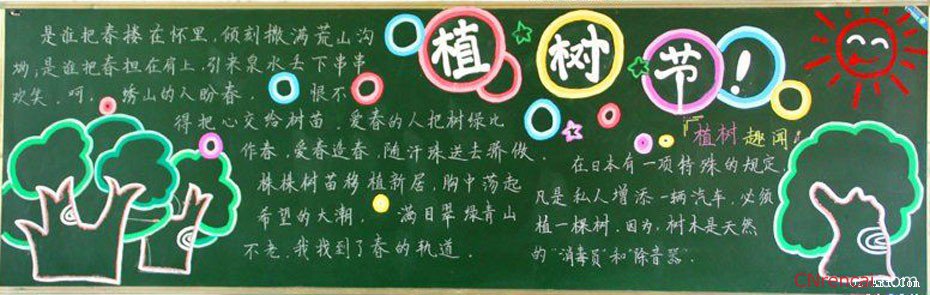 植树节!
是谁把春搂在怀里,倾刻撒满荒山沟
坳,是谁把春担在肩上,引来泉水丢下串串
欢笑。呵,绣山的人盼春。恨不
得把心交给树苗 爱春的人把树绿比
作春,爱春造春,随汗珠送去骄傲。
株株树苗移植新居,胸中荡起
希望的大潮。 满目翠绿青山
不老,我找到了春的轨道。
植树趣闻
在日本有一项特殊的规定,
凡是私人增添一辆汽车,必须
植一棵树,因为,树木是天然
的"消毒员"和"除音器"。
CNrencai.com